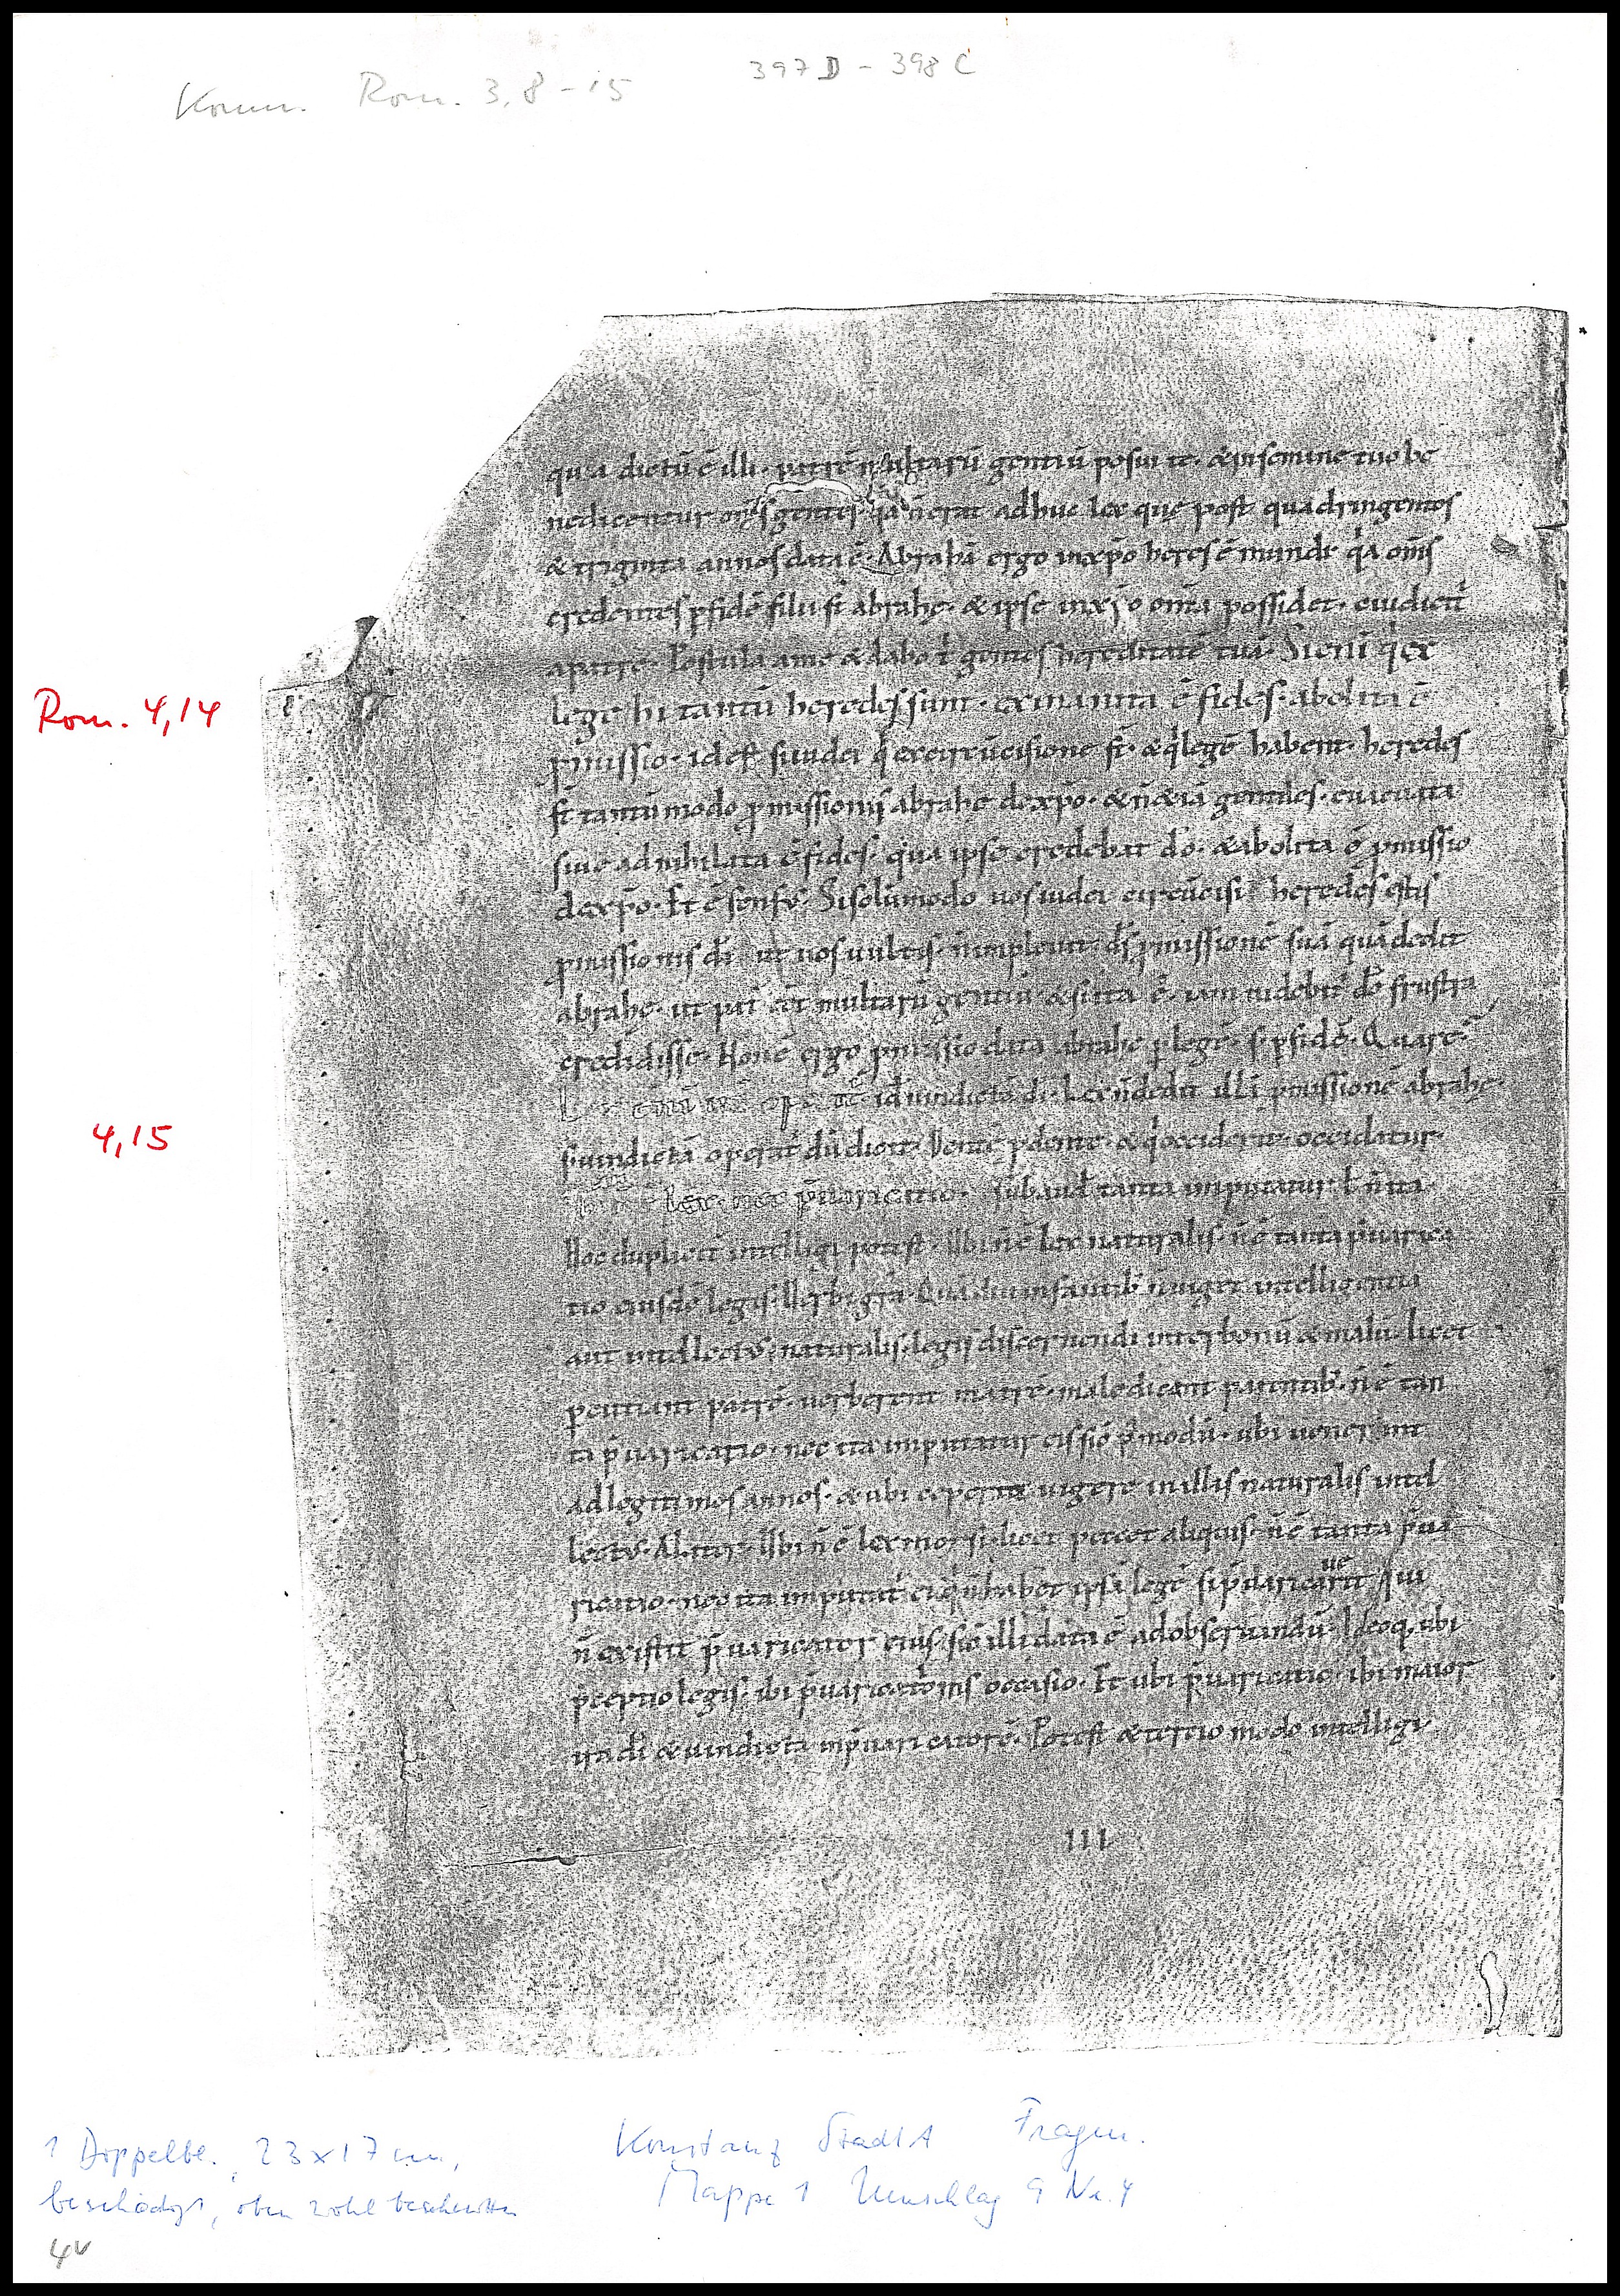 397 D - 398 C
Komm. Rom. 3,8-15
qua dictū ē illi · patrē multarū gentiū posui te · & in semine tuo be
nedicentur om̄s gentes · q̄a n̄ erat adhuc lex quę post quadringentos
& triginta annos data ē · Abrahā ergo in xp̄o heres ē mundi q̄a om̄s
credentes p fidē filii st̄ abrahę · & ipse in xp̄o om̄a possidet · cui dicit̄
a patre · Postula a me & dabo t̄ gentes hereditatē tuā · Si enī q̄ ex
Rom. 4,14
lege hi tantū heredes sunt · exinanita ē fides · abolita ē
p̄missio · id est si iudei q̄ ex circūcisione st̄ · & q̄ legē habent · heredes
st̄ tantūmodo p̄missionis abrahę de xp̄o · & n̄ & iā gentiles · euacuata
siue adnihilata ē fides · qua ipse credebat dō · & abolita ē p̄missio
de xp̄o · Et ē sensus · Si solūmodo uos iudei circūcisi heredes estis
p̄missionis dī ut uos uultis · n̄ impleuit ds̄ p̄missionē suā quā dedit
abrahę · ut pat̄ eēt multarū gentiū · & si ita ē · iam uidebit̄ dō frustra
credidisse · Non ē ergo p̄missio data abrahę p legē · s̄ p fidē · Quare
4,15
Lex enī irā opat̄ id uindictā dī · Lex n̄ dedit illi p̄missionē abrahę ·
s̄ uindictā operat̄ dū dicit · Dentē p dente · & q̄ occiderit · occidatur ·
lex · nec p̄uaricatio · subaud̄ tanta imputatur ł n̄ ita ·
Hoc duplicit̄ intelligi potest · Ubi n̄ ē lex naturalis · n̄ ē tanta p̄uarica
tio eiusdē legis · Uerbi gr̄a · Quādiu infantib; n̄ uiget intelligentia
aut intellectus naturalis legis discernendi inter bonū & malū · licet
pcutiant patrē · uerberent matrē · maledicant parentib; · n̄ ē tan
ta p̄uaricatio · nec ita imputatur eis sic̄ p̄modū · ubi uenerint
ad legitimos annos · & ubi ceperit uigere in illis naturalis intel
lectus · Aliter · Ubi n̄ ē lex moysi · licet peccet aliquis · n̄ ē tanta p̄ua
ricatio · nec ita imputat̄ ei q̄ n̄ habet ipsā legē si p̄uaricatur
n̄ existit p̄uaricator eius · sic̄ illi data ē ad obseruandū · Ideoq; ubi
p̄ceptio legis · ibi p̄uaricationis occasio · Et ubi p̄uaricatio · ibi maior
ira dī & uindicta in p̄uaricatore · Potest & tertio modo intelligi
III
1 Doppelbl., 23x17 cm,
beschädigt, oben wohl beschnitten
Konstanz StadtA Fragm.
Mappe 1 Umschlag 9 Nr. 4
4v